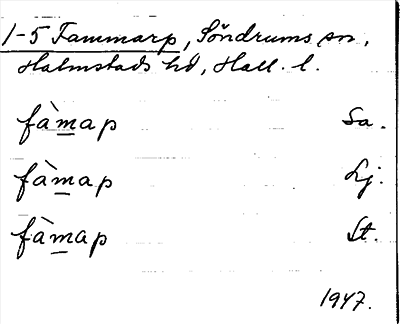 1-5 Fammarp, Söndrums sn.
Halmstads hd, Hall. l.
fàm̲ap Sa.
fàm̲ap Lj.
fàm̲ap St.
1947.